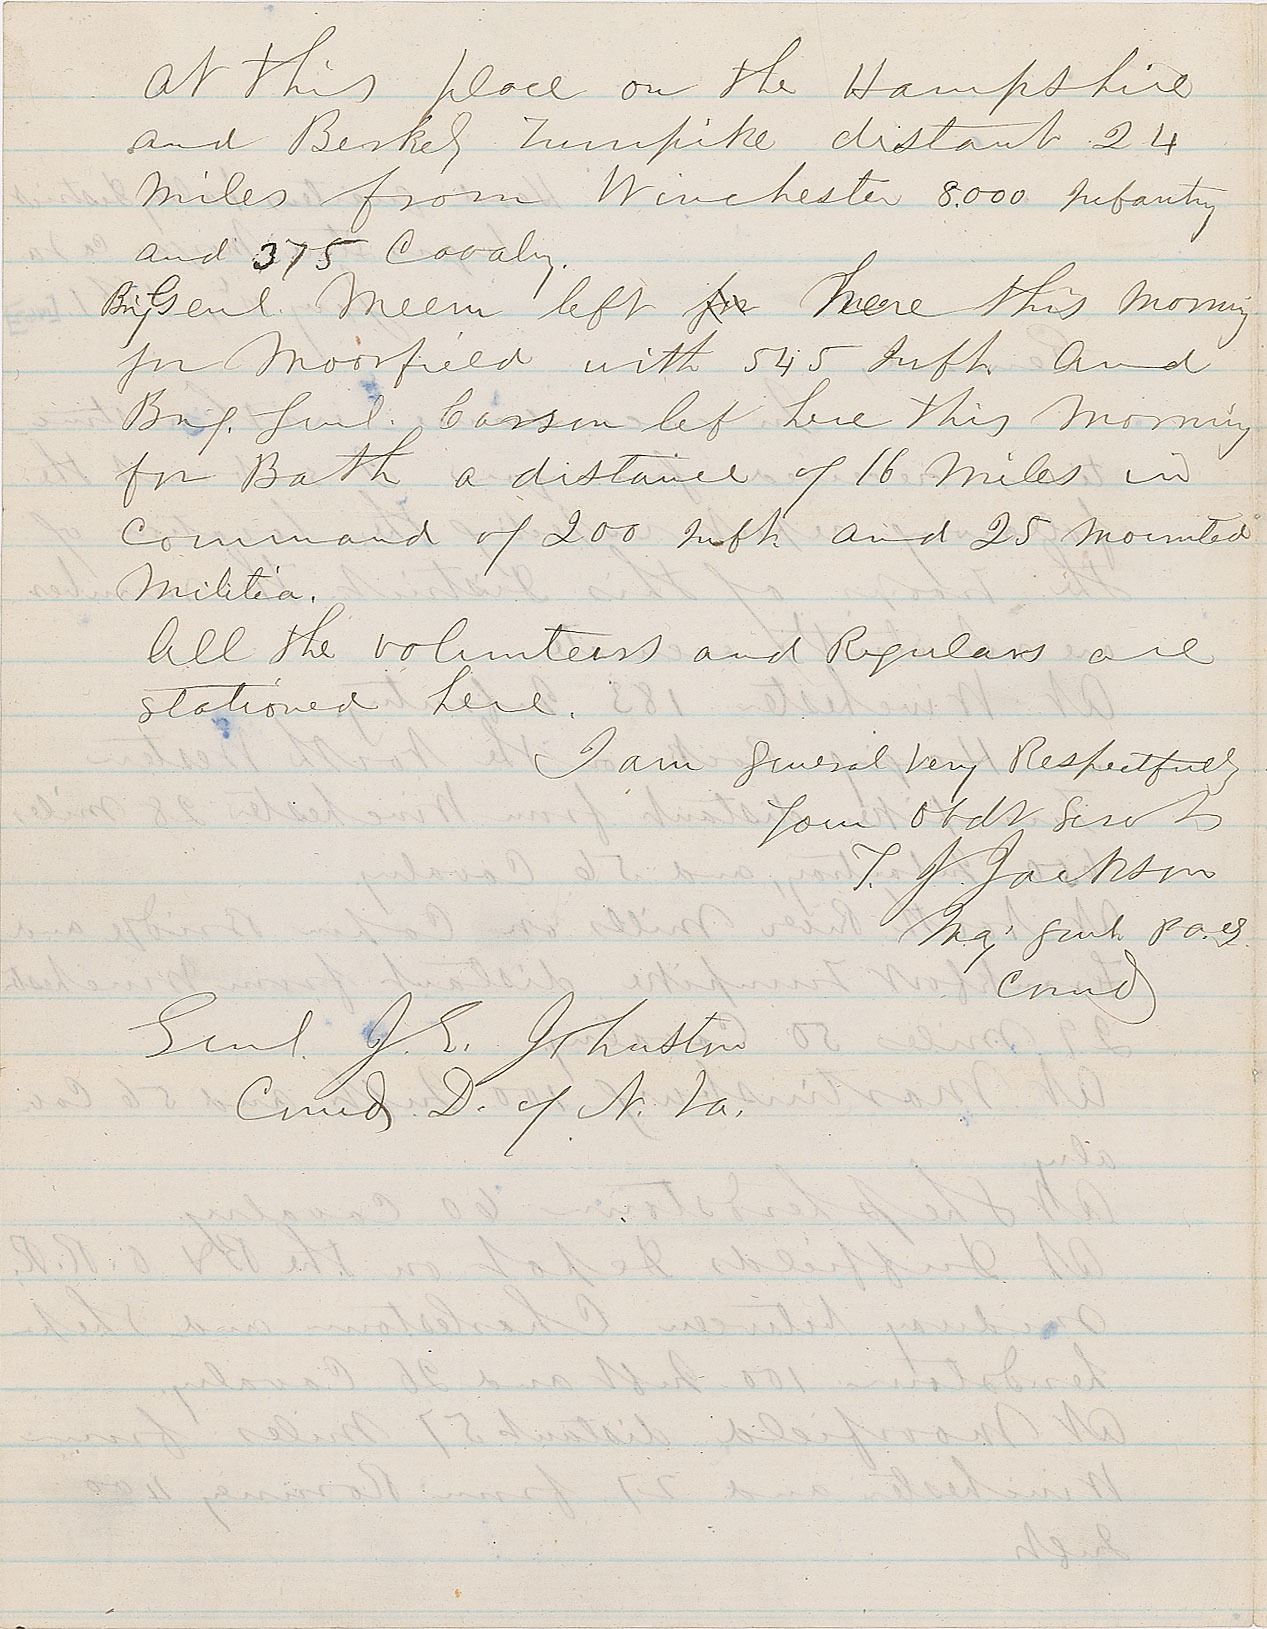 at this place on the Hampshire
and Berkely Turnpike distant 24
Miles from Winchester 8.000 Infantry
and 375 Cavalry.
Brig Genl. Meem left for here this Morning
for Moorfield with 545 Infty and
Brig. Genl. Carson left here this Morning
for Bath a distance of 16 Miles in
command of 200 Infty and 25 mounted
Militia.
All the volunteers and Regulars are
stationed here.
I am general very Respectfully
Your Obdt Servt
T. J. Jackson
Maj Genl. P.A.C.S.
Comd
Genl. J. E. Johnston
Comd D. of N. Va.